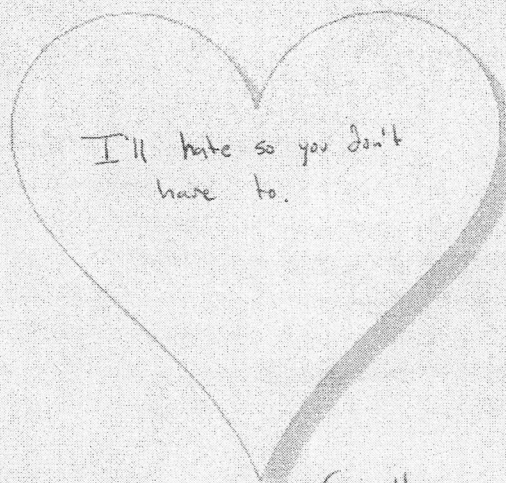 I'll hate so you don't
have to.